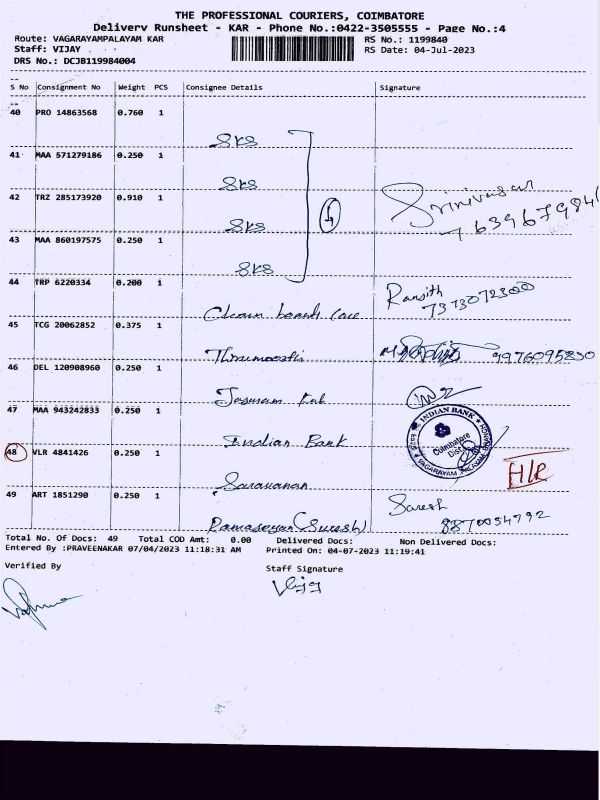 THE PROFESSIONAL COURIERS, COIMBATORE
Delivery Runsheet - KAR - Phone No.:0422-3505555 - Page No.:4
Route: VAGARAYAMPALAYAM KAR RS No.: 1199840
Staff: VIJAY RS Date: 04-Jul-2023
DRS No.: DCJB119984004
S No Consignment No Weight PCS Consignee Details Signature
40 PRO 14863568 0.760 1
SKS
41 MAA 571279186 0.250 1
SKS
42 TRZ 285173920 0.910 1
SKS
Srinivasan
43 MAA 860197575 0.250 1
SKS
44 TRP 6220334 0.200 1
Ranjith
7373072300
45 TCG 20062852 0.375 1
Thirumoorthi
9976095850
46 DEL 120908960 0.250 1
47 MAA 943242833 0.250 1
Indian Bank
INDIAN BANK
Coimbatore
Dist
VAGARAYAMPALAYAM
48 VLR 4841426 0.250 1
Saravanan
49 ART 1851290 0.250 1
Suresh
(Suresh)
Total No. Of Docs: 49 Total COD Amt: 0.00 Delivered Docs: Non Delivered Docs:
Entered By :PRAVEENAKAR 07/04/2023 11:18:31 AM Printed On: 04-07-2023 11:19:41
Verified By Staff Signature
Vijay